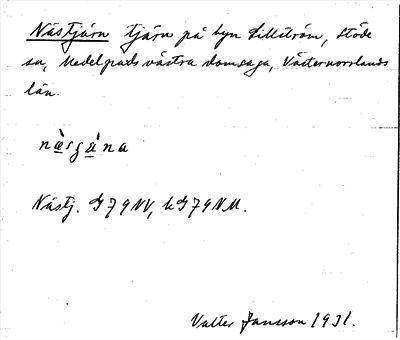 Nästjärn tjärn på byn Lillström, Stöde
sn, Medelpads västra domsaga, Västernorrlands
län.
näsgána
Nästj. G79NV, kG79NV.
Valter Jansson 1931.